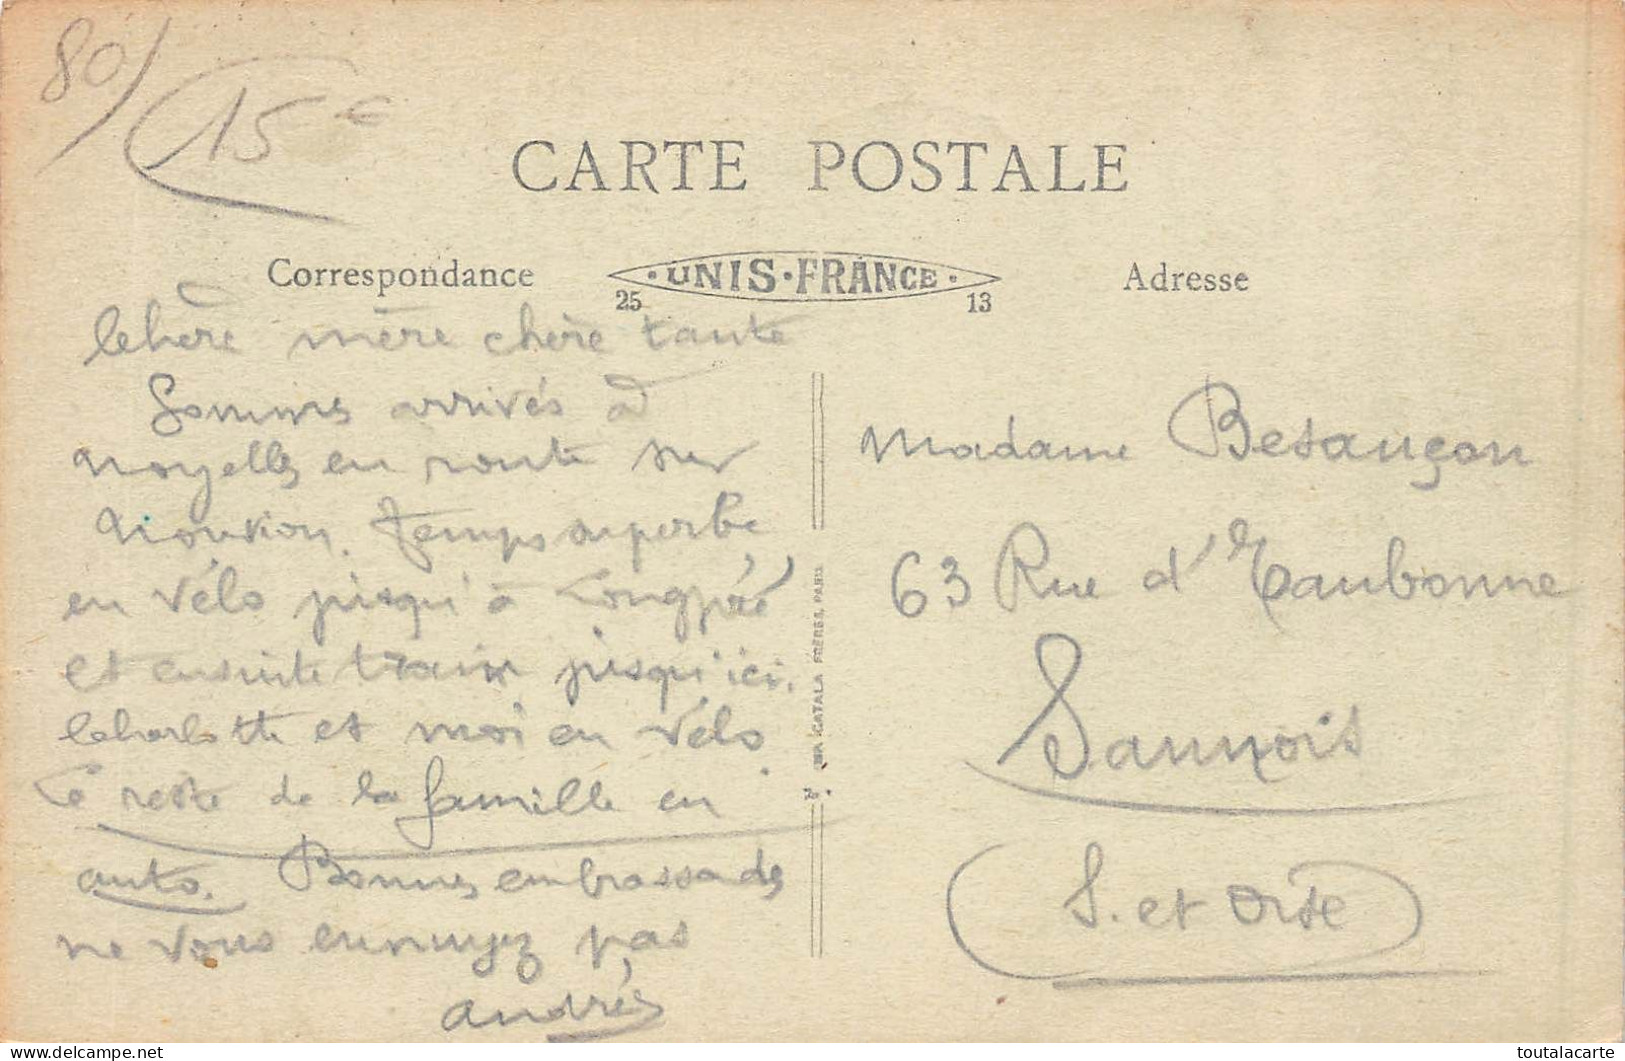 80/
15 €
CARTE POSTALE
Correspondance
25 · UNIS · FRANCE · 13
Adresse
Chère mère chère tante
Sommes arrivés à
Noyelles en route sur
Nouvion. Temps superbe
en vélo jusqu'à Longpré
et ensuite train jusqu'ici.
Charlotte et moi en vélo
Le reste de la famille en
auto. Bonnes embrassades
ne vous ennuyez pas
André
IMP. CATALA FRÈRES, PARIS
Madame Besançon
63 Rue d'Eaubonne
Sannois
(S. et Oise)
toutalacarte